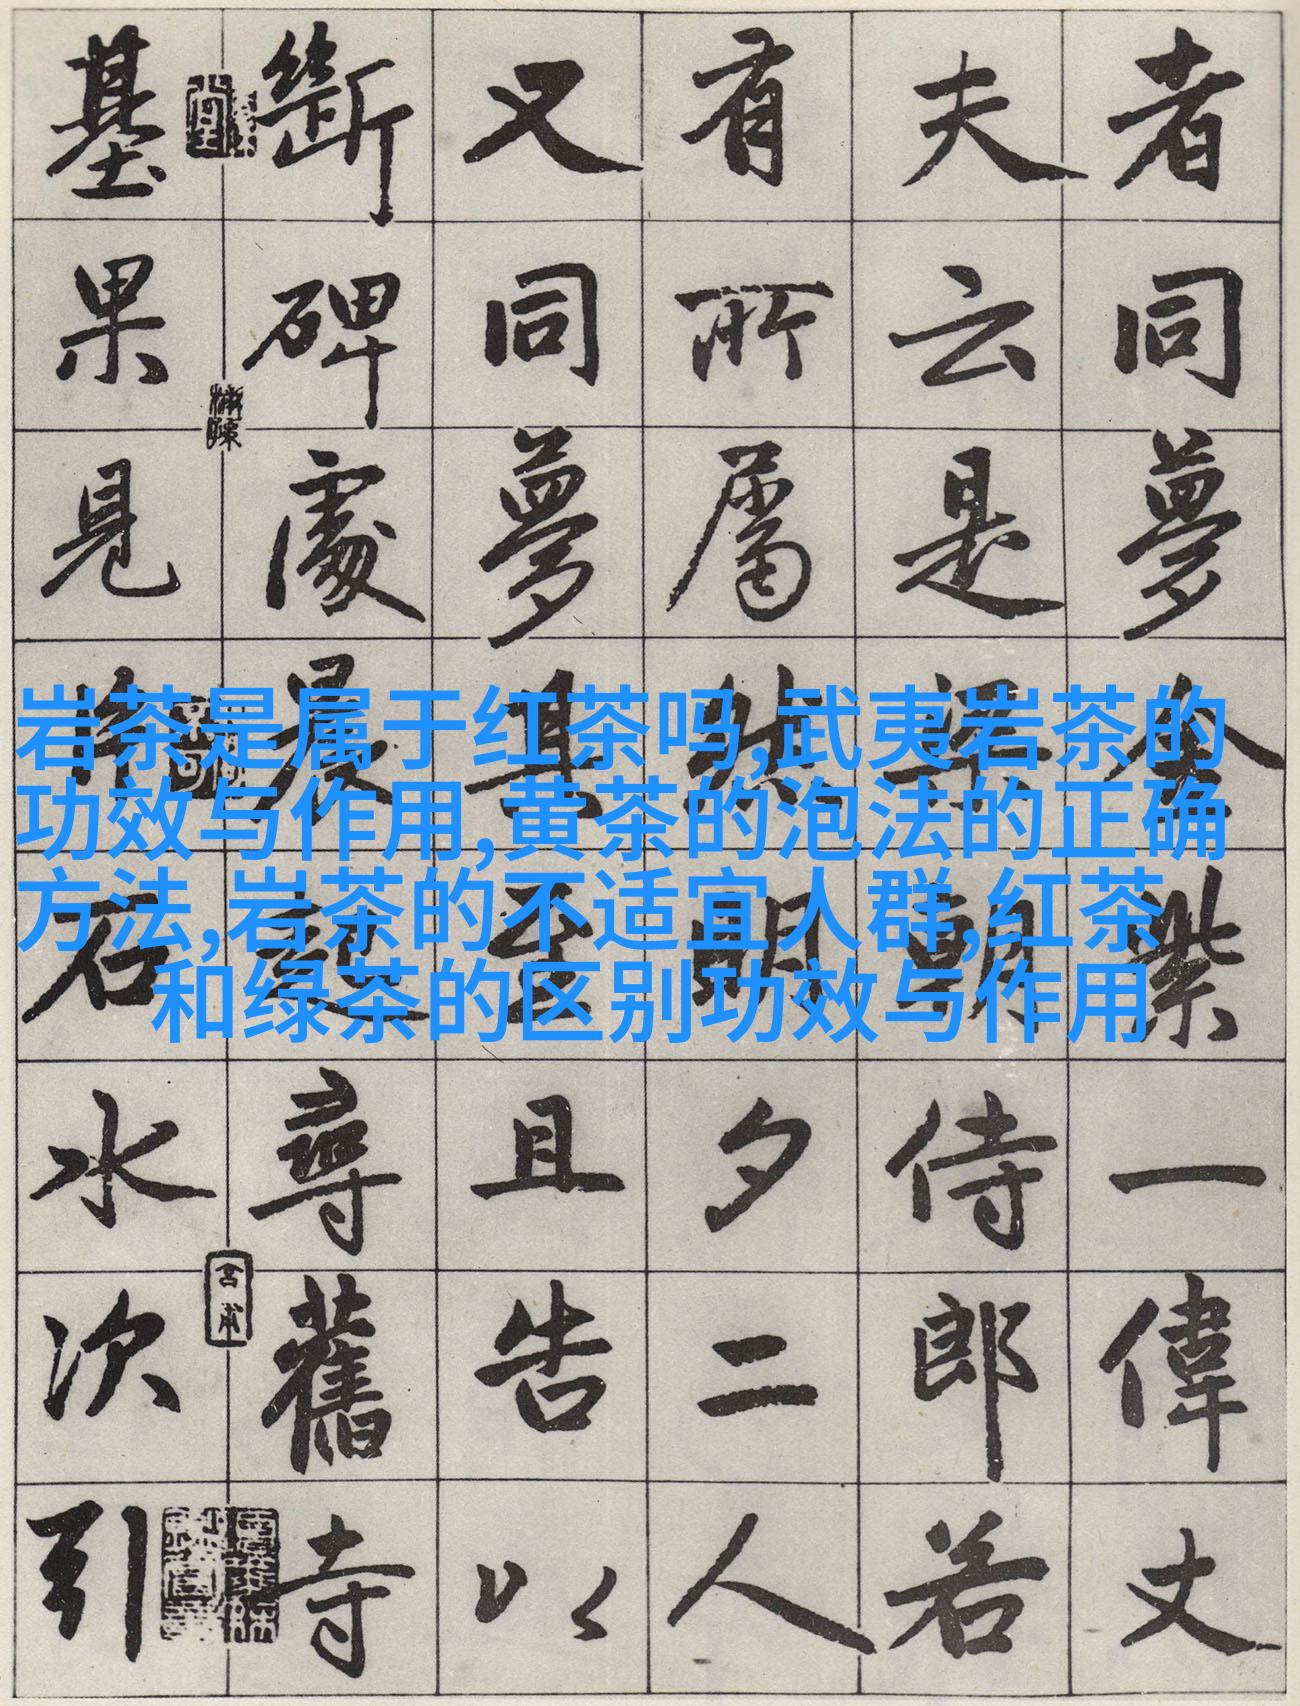 岩茶是属于红茶吗,武夷岩茶的
功效与作用,黄茶的泡法的正确
方法,岩茶的不适宜人群,红茶
和绿茶的区别功效与作用
者同夢金紫一偉丈
夫云是朝侍郎若
有所屬明夕二人
又同夢至且告以
斷碑處晨尋舊寺
基果見石水次引